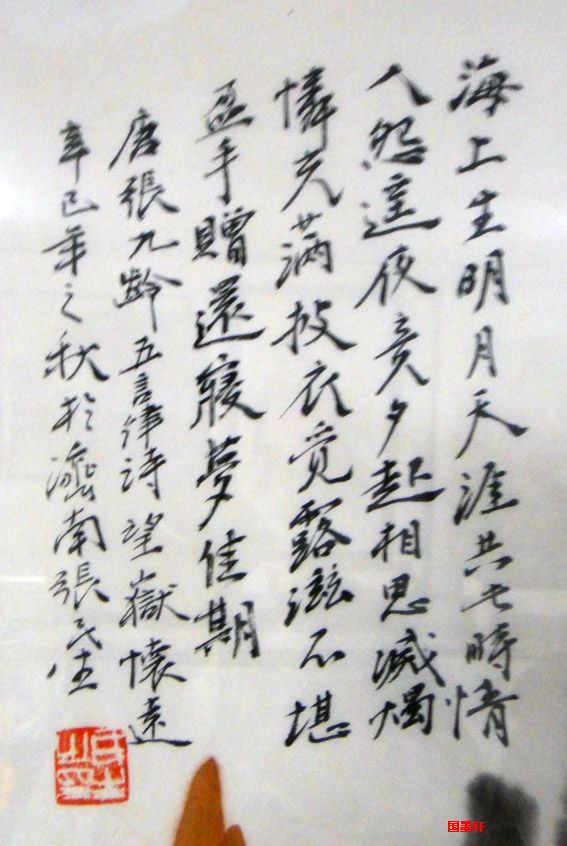 海上生明月天涯共此時情
人怨遥夜竟夕起相思滅燭
憐光滿披衣觉露滋不堪
盈手贈還寢夢佳期
唐張九齡五言律詩望嶽懷遠
辛巳年之秋於濟南張